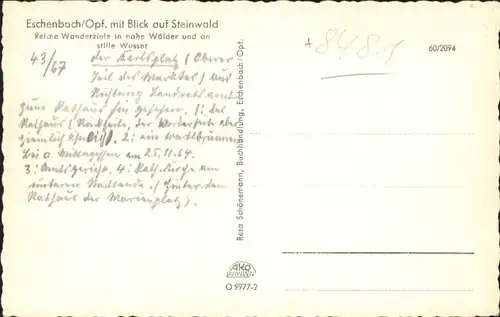 Eschenbach/Opf. mit Blick auf Steinwald
Reiche Wanderziele in nahe Wälder und an
stille Wasser
43/67
der Karlsplatz (Oberer
Teil des Marktes) aus
Richtung Landratsamt
zum Rathaus hin gesehen. 1: das
Rathaus (Rückseite, der Vorderseite aber
ziemlich ähnlich). 2: ein Marktbrunnen
am 25.11.64.
3: Amtsgericht. 4: Kath. Kirche am
unteren Stadtende. (Hinter dem
Rathaus der Marienplatz).
+ 8481
60/2094
Resa Schönemann, Buchhandlung, Eschenbach/Opf.
AKO
O 9977-2